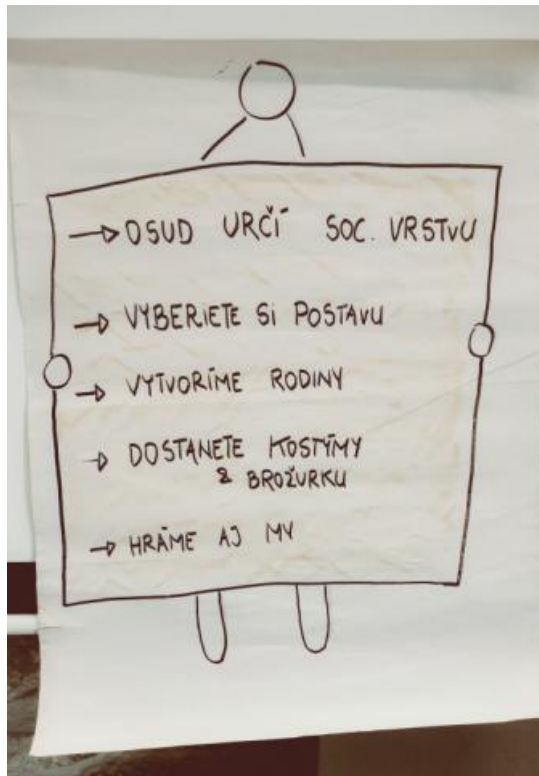 → OSUD URČÍ SOC. VRSTVU
→ VYBERIETE SI POSTAVU
→ VYTVORÍME RODINY
→ DOSTANETE KOSTÝMY
& BROŽURKU
→ HRÁME AJ MY